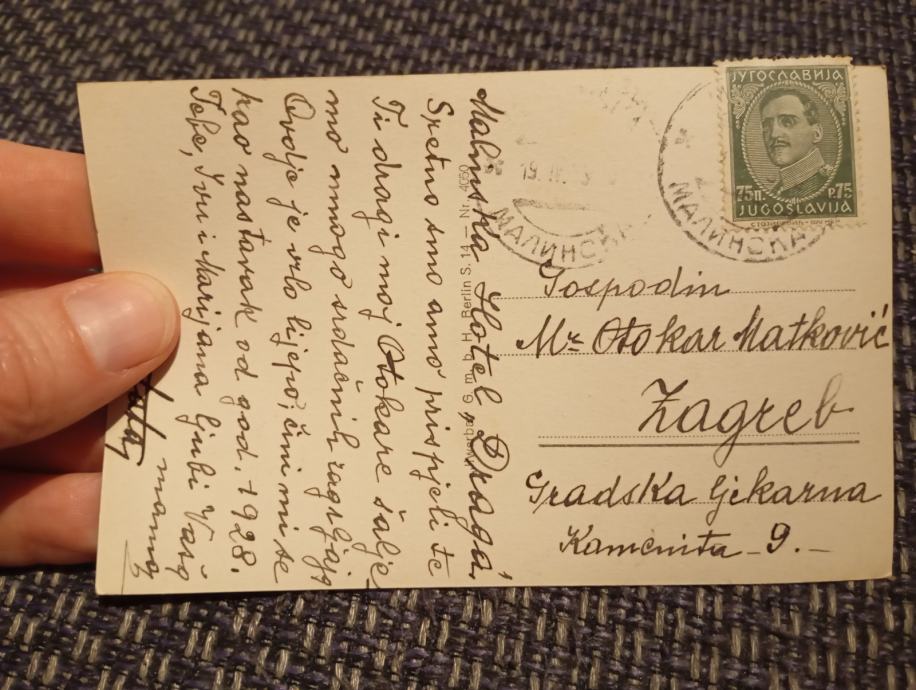 Malinska Hotel „Draga‟
Sretno smo amo prispjeli te
Ti dragi moj Otokare šalje-
mo mnogo srdačnih zagrljaja
Ovdje je vrlo lijepo, čini mi se
kao nastavak od god. 1928.
Tebe, Ivu i Marijana ljubi Vaš
tata
mama
ЈУГОСЛАВИЈА
75п. P.75
JUGOSLAVIJA
МАЛИНСКА
МАЛИНСКА
Gospodin
Mr Otokar Matković
Zagreb
Gradska ljekarna
Kamenita - 9. -
G. m. b. H. Berlin S. 14